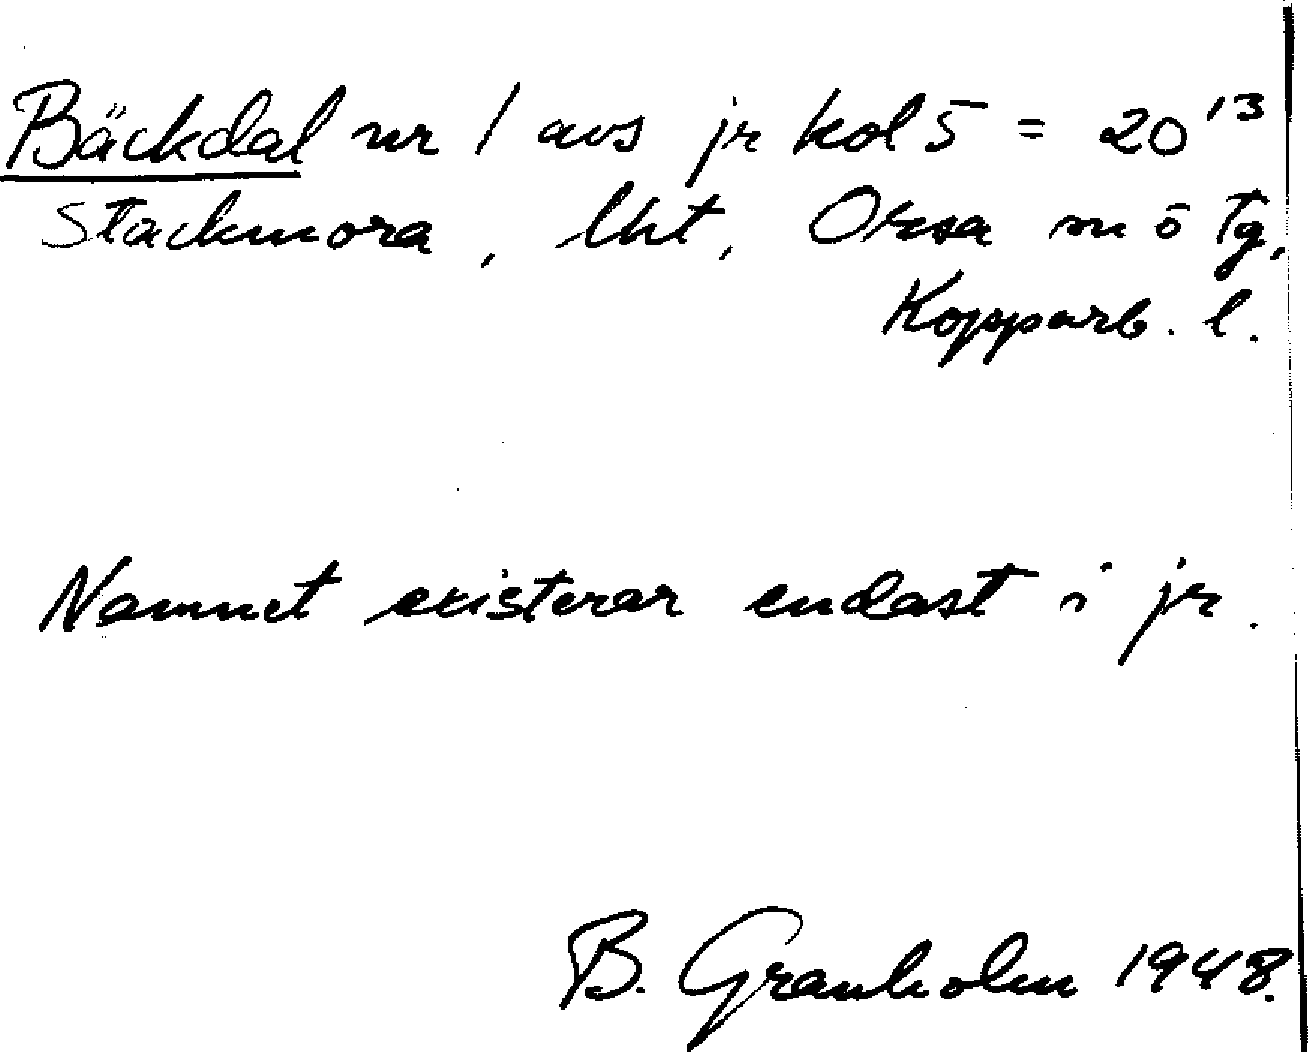 Bäckdal nr 1 avs jr kol 5 = 20 13
Stackmora, lht, Orsa m ö Tg,
Kopparb. l.
Namnet existerar endast i jr.
B. Granholm 1948.